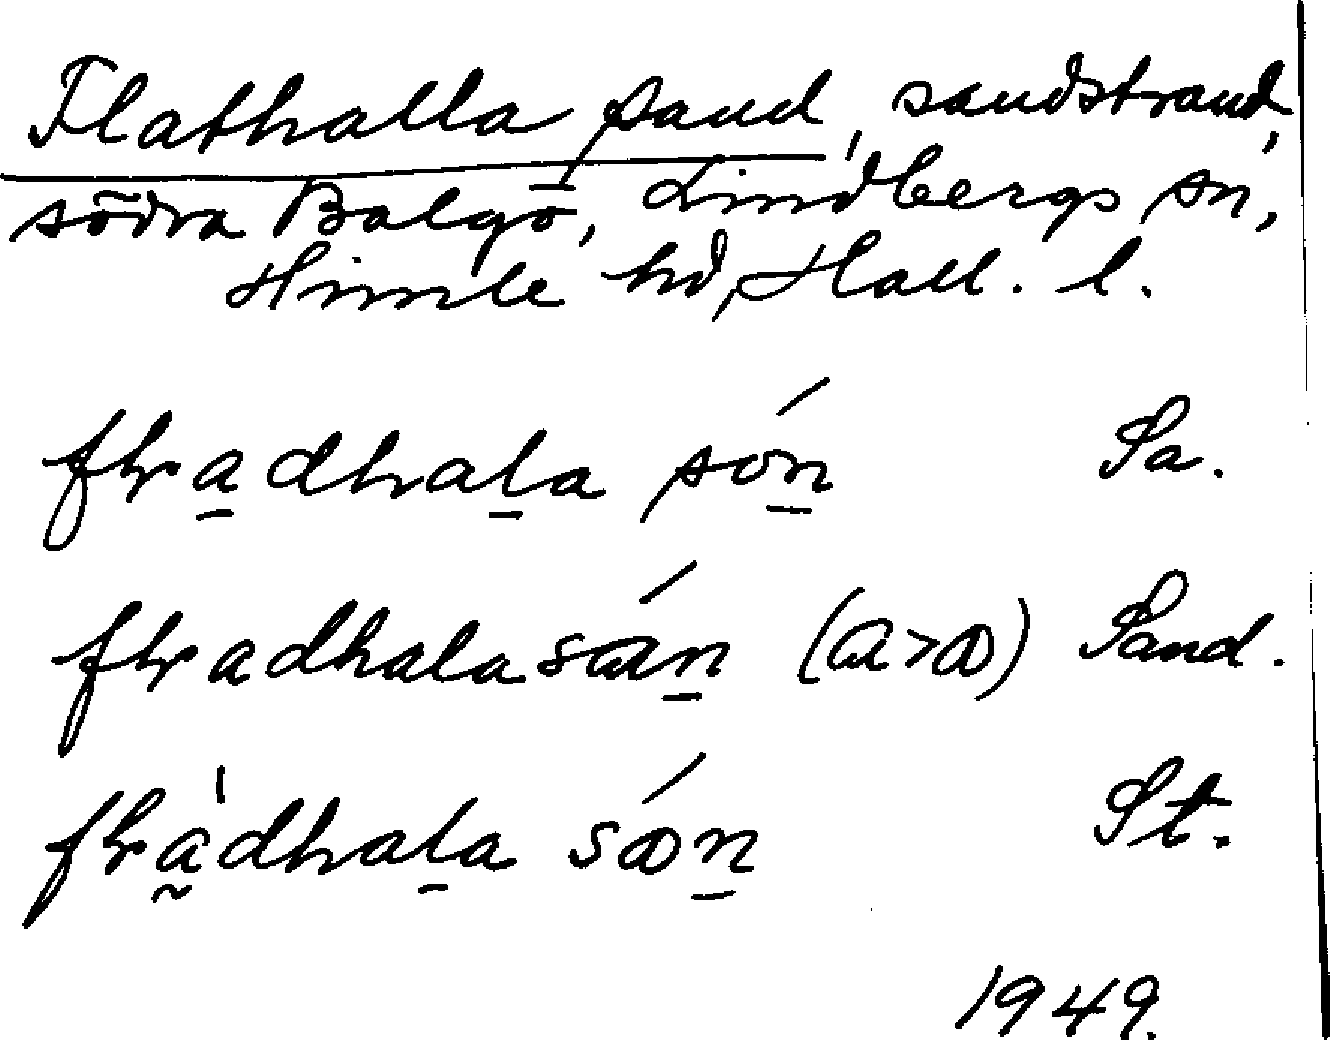 Flathalla sand, sandstrand,
södra Balgö, Lindbergs sn,
Himle hd, Hall. l.
fłra̱dhaḻa són̠ Sa.
fłradhalasɑ́n̠ (ɑ>ꝏ) Sand.
fłrà̰dhaḻa sꝏ́n̠ St.
1949.